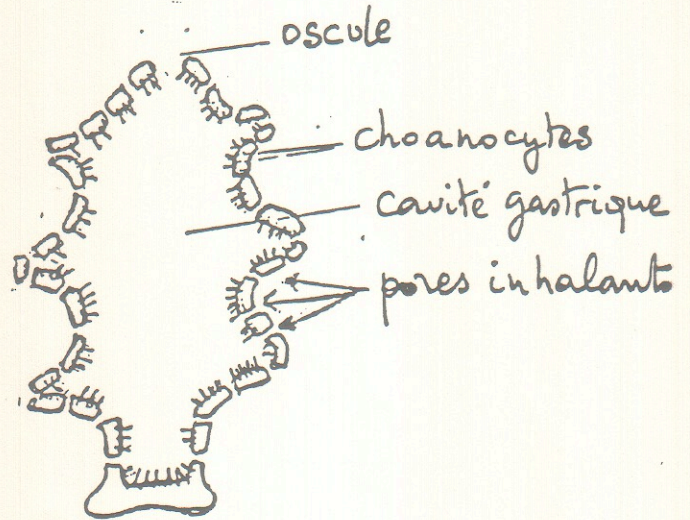 oscule
choanocytes
cavité gastrique
pores inhalants